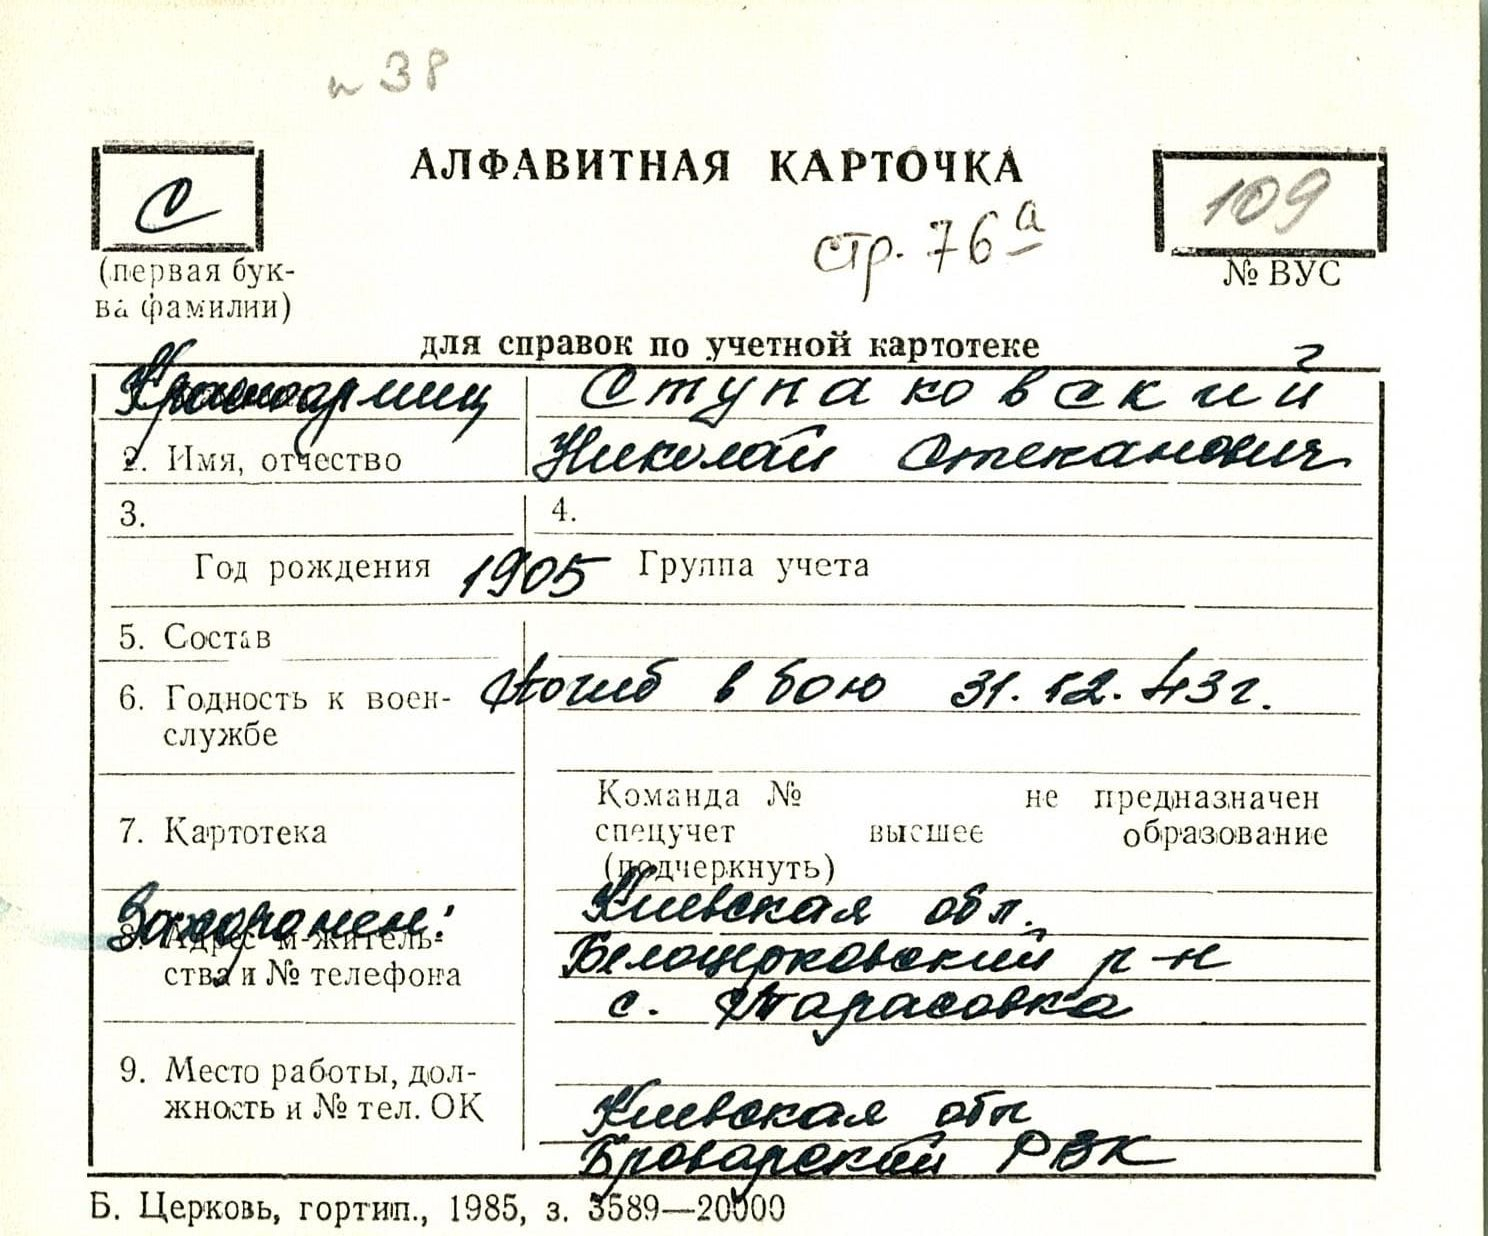 п 38
С
АЛФАВИТНАЯ КАРТОЧКА
109
(первая бук-
ва фамилии)
стр. 76а
№ ВУС
для справок по учетной картотеке
Красноармеец Ступаковский
2. Имя, отчество Николай Степанович
3. 4.
Год рождения 1905 Группа учета
5. Состав
6. Годность к воен-
службе
Погиб в бою 31.12.43г.
7. Картотека
Команда № не предназначен
спецучет высшее образование
(подчеркнуть)
Захоронен: Киевская обл.
8. Адрес м-житель-
ства и № телефона
Белоцерковский р-н
с. Тарасовка
9. Место работы, дол-
жность и № тел. ОК
Киевская обл
Броварский РВК
Б. Церковь, гортип., 1985, з. 3589—20000